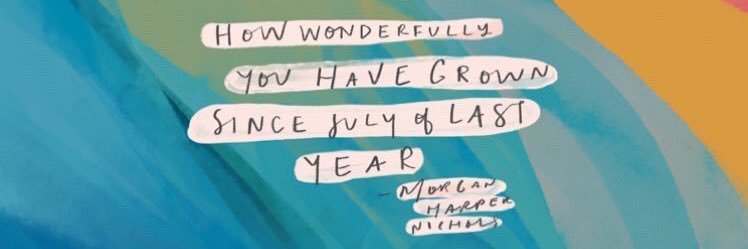 HOW WONDERFULLY
YOU HAVE GROWN
SINCE JULY of LAST
YEAR
- MORGAN
HARPER
NICHOLS